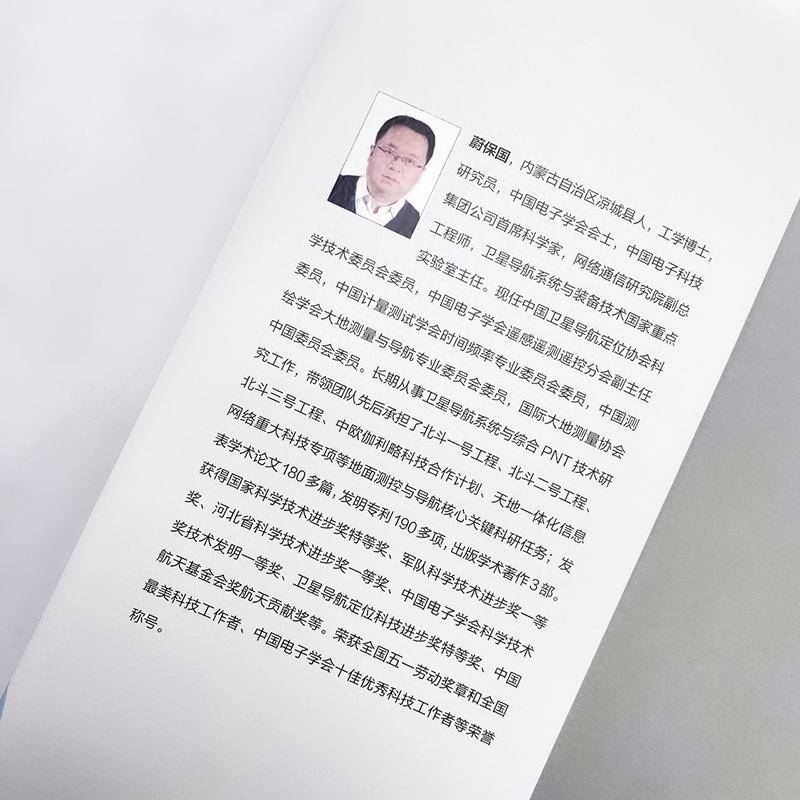 蔚保国，内蒙古自治区凉城县人，工学博士，
研究员，中国电子学会会士，中国电子科技
集团公司首席科学家，网络通信研究院副总
工程师，卫星导航系统与装备技术国家重点
实验室主任。现任中国卫星导航定位协会科
学技术委员会委员，中国电子学会遥感遥测遥控分会副主任
委员，中国计量测试学会时间频率专业委员会委员，中国测
绘学会大地测量与导航专业委员会委员，国际大地测量协会
中国委员会委员。长期从事卫星导航系统与综合 PNT 技术研
究工作，带领团队先后承担了北斗一号工程、北斗二号工程、
北斗三号工程、中欧伽利略科技合作计划、天地一体化信息
网络重大科技专项等地面测控与导航核心关键科研任务；发
表学术论文 180 多篇，发明专利 190 多项，出版学术著作 3 部。
获得国家科学技术进步奖特等奖、军队科学技术进步奖一等
奖、河北省科学技术进步奖一等奖、中国电子学会科学技术
奖技术发明一等奖、卫星导航定位科技进步奖特等奖、中国
航天基金会奖航天贡献奖等。荣获全国五一劳动奖章和全国
最美科技工作者、中国电子学会十佳优秀科技工作者等荣誉
称号。